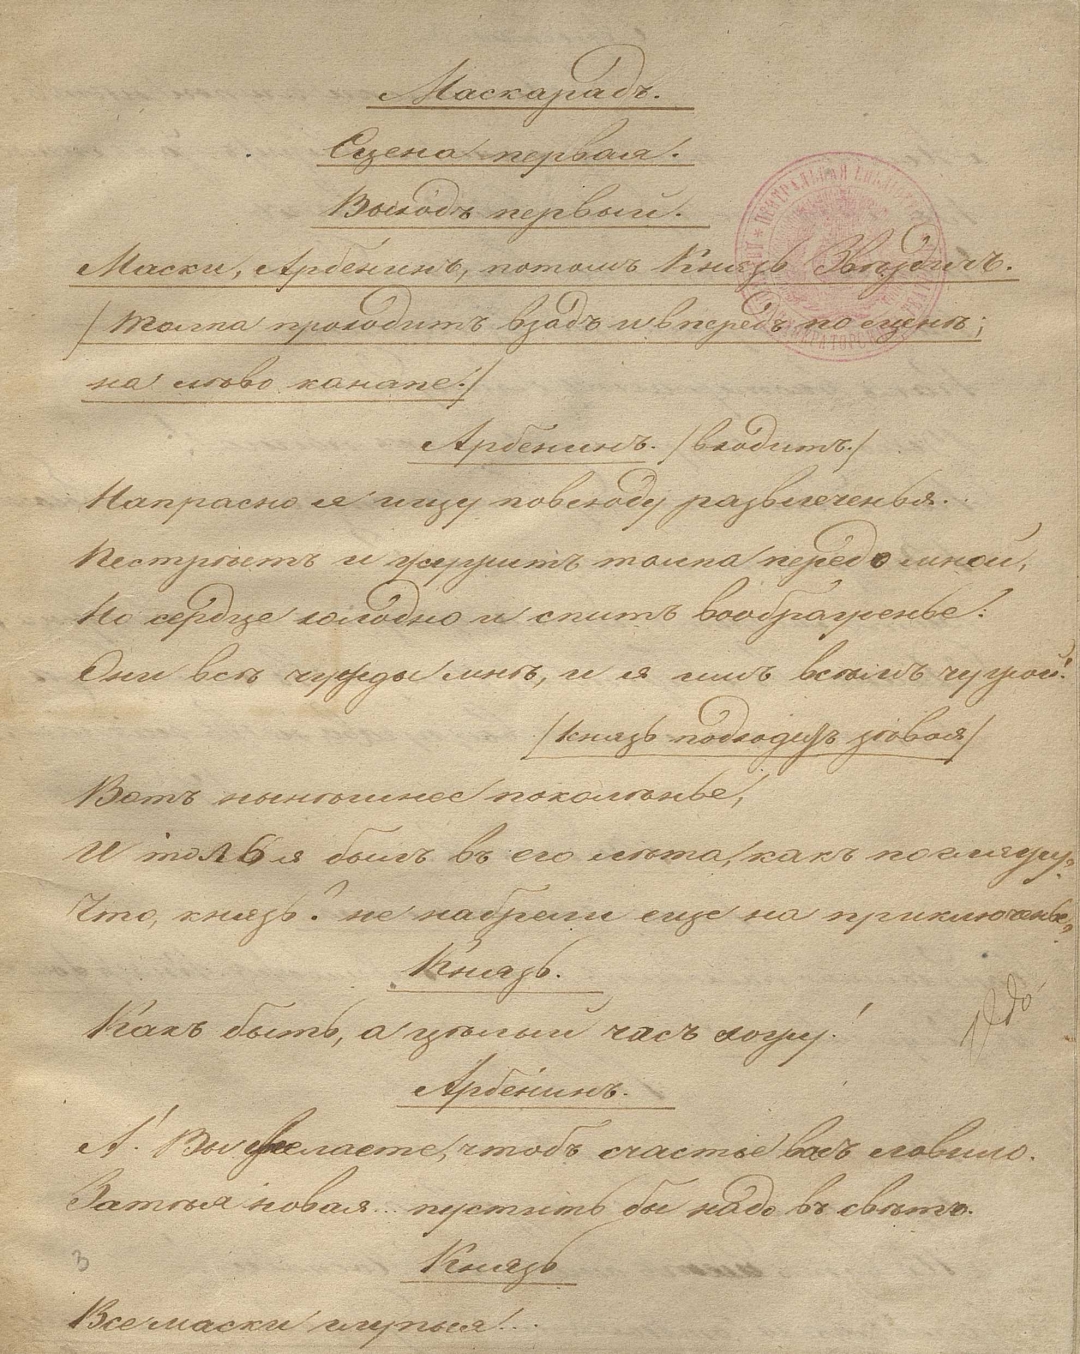 Маскарадъ.
Сцена первая.
Выходъ первый.
Маски, Арбенинъ, потомъ Князь Звѣздичъ.
/Толпа проходитъ взадъ и впередъ по сценѣ;
на лѣво канапе./
Арбенинъ. /входитъ./
Напрасно я ищу повсюду развлеченья..
Пестрѣетъ и жужжитъ толпа передо мной,
Но сердце холодно и спитъ воображенье:
Они всѣ чужды мнѣ, и я имъ всѣмъ чужой!
/Князь подходитъ зѣвая/
Вотъ нынѣшнее поколѣнье,
И то ль я былъ въ его лѣта, какъ погляжу,
Что, князь? не набрели еще на приключенье,
Князь.
Какъ быть, а цѣлый часъ хожу!
Арбенинъ.
А! Вы желаете, чтобъ счастье васъ ловило.
Затѣя новая... пустить бы надо въ свѣтъ.
3
Князь
Все маски глупыя...